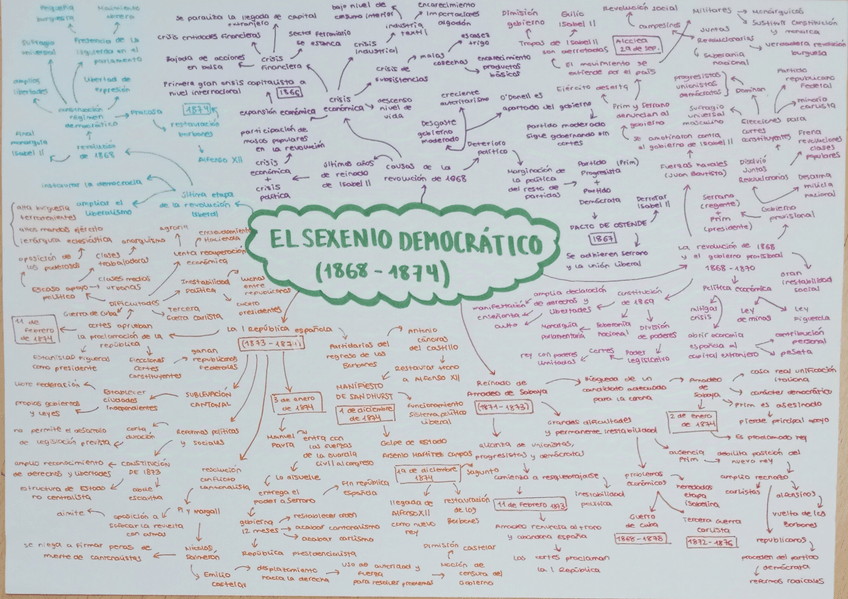 EL SEXENIO DEMOCRÁTICO
(1868 - 1874)
pequeña
burguesía
Movimiento
obrero
Sufragio
universal
Presencia de la
izquierda en el
parlamento
amplias
libertades
libertad de
expresión
construcción
régimen
democrático
Fracasa
1874
restauración
borbones
Alfonso XII
Final
monarquía
Isabel II
revolución
de 1868
instaurar la democracia
ampliar el
liberalismo
última etapa
de la revolución
liberal
se paraliza la llegada de capital
extranjero
crisis entidades financieras
Sector ferroviario
se estanca
Bajada de acciones
en bolsa
crisis
financiera
Primera gran crisis capitalista a
nivel internacional
1866
expansión económica
crisis
económica
participación de
masas populares
en la revolución
crisis
económica
+
crisis
política
últimos años
de reinado
de Isabel II
causas de la
revolución de 1868
bajo nivel de
consumo interior
encarecimiento
importaciones
algodón
industria
textil
crisis
industrial
malas
cosechas
escasez
trigo
encarecimiento
productos
básicos
crisis de
subsistencias
descenso
nivel de
vida
Desgaste
gobierno
moderado
creciente
autoritarismo
O'Donell es
apartado del gobierno
Deterioro
político
Partido moderado
sigue gobernando sin
cortes
Marginación de
la política
del resto de
partidos
Partido (Prim)
Progresista
+
Partido
Demócrata
Derrocar
Isabel II
PACTO DE OSTENDE
1867
Se adhieren Serrano
y la unión liberal
Dimisión
gobierno
Exilio
Isabel II
Tropas de Isabel II
son derrotadas
Alcolea
28 de sep.
El movimiento se
extiende por el país
Ejército
Prim y Serrano
anuncian al
gobierno
se amotinaron contra
el gobierno de Isabel II
Fuerzas navales
(Juan Bautista)
Revolución social
campesinos
Militares
Monárquicos
Sustituir constitución
y monarca
Juntas
Revolucionarias
verdadera revolución
burguesa
Soberanía
nacional
progresistas
unionistas
demócratas
Dominan
Partido
republicano
Federal
minoría
carlista
Sufragio
universal
masculino
Elecciones para
cortes
constituyentes
Disolvió
juntas
Revolucionarias
Frena
revolución
clases
populares
Desarma
milicia
nacional
Serrano
(regente)
+
Prim
(presidente)
Gobierno
provisional
La revolución de 1868
y el gobierno provisional
1868 - 1870
Gran
inestabilidad
social
Política económica
mitigar
crisis
Ley
de minas
Ley
Figuerola
abrir economía
española al
capital extranjero
contribución
personal
peseta
amplia declaración
de derechos y
libertades
constitución
de 1869
manifestación
enseñanza
culto
Monarquía
parlamentaria
Soberanía
nacional
División
de poderes
rey con poderes
limitados
Cortes
Poder
legislativo
alta burguesía
terratenientes
altos mandos ejército
jerarquía eclesiástica
oposición de
los poderosos
agrario
anarquismo
clases
trabajadoras
Escaso apoyo
político
clases medias
urbanas
lenta recuperación
económica
endeudamiento
Hacienda
Inestabilidad
política
luchas
entre
republicanos
cuatro
presidentes
Dificultades
Guerra de Cuba
tercera
guerra carlista
11 de
febrero
de 1874
cortes aprueban
la proclamación de la
república
La I República española
(1873 - 1874)
Estanislao Figueras
como presidente
Elecciones
cortes
constituyentes
ganan
republicanos
federales
libre federación
Establecer
ciudades
independientes
SUBLEVACIÓN
CANTONAL
propios gobiernos
y leyes
no permite el desarrollo
de legislación prevista
corta
duración
Reformas políticas
y sociales
amplio reconocimiento
de derechos y libertades
CONSTITUCIÓN
DE 1873
estructura de Estado
no centralista
resolución
conflicto
cantonalista
dimite
oposición a
sofocar la revuelta
con armas
Pi y Margall
se niega a firmar penas de
muerte de cantonalistas
Nicolás
Salmerón
Emilio
Castelar
desplazamiento
hacia la derecha
uso de autoridad y
fuerza
para resolver problemas
moción de
censura del
gobierno
Dimisión Castelar
3 de enero
de 1874
Manuel
Pavía
entra con
las fuerzas
de la Guardia
Civil al congreso
La disuelve
Fin república
española
entrega el
poder a Serrano
gobierna
12 meses
restablecer orden
acabar cantonalismo
acabar carlismo
República presidencialista
Partidarios del
regreso de los
Borbones
Antonio
Cánovas
del Castillo
Restaurar trono
a Alfonso XII
MANIFIESTO
DE SANDHURST
1 de diciembre
de 1874
Funcionamiento
Sistema político
liberal
Golpe de Estado
Arsenio Martínez Campos
29 de diciembre
1874
Sagunto
llegada de
Alfonso XII
como nuevo
rey
restauración
de los
Borbones
Reinado de
Amadeo de Saboya
(1871 - 1873)
Búsqueda de un
candidato adecuado
para la corona
Amadeo
de
Saboya
casa real unificación
italiana
carácter democrático
Prim es asesinado
pierde principal apoyo
2 de enero
de 1871
Es proclamado rey
Grandes dificultades
y permanente inestabilidad
alianza de unionistas,
progresistas y demócratas
comienza a resquebrajarse
Inestabilidad
política
11 de febrero 1873
Amadeo renuncia al trono
y abandona España
Las cortes proclaman
la I República
ausencia
Prim
debilita posición del
nuevo rey
problemas
económicos
heredados
etapa
isabelina
amplio rechazo
carlistas
alfonsinos
vuelta de los
Borbones
republicanos
proceden del partido
demócrata
reformas radicales
Guerra
de Cuba
1868 - 1878
Tercera guerra
carlista
1872 - 1876